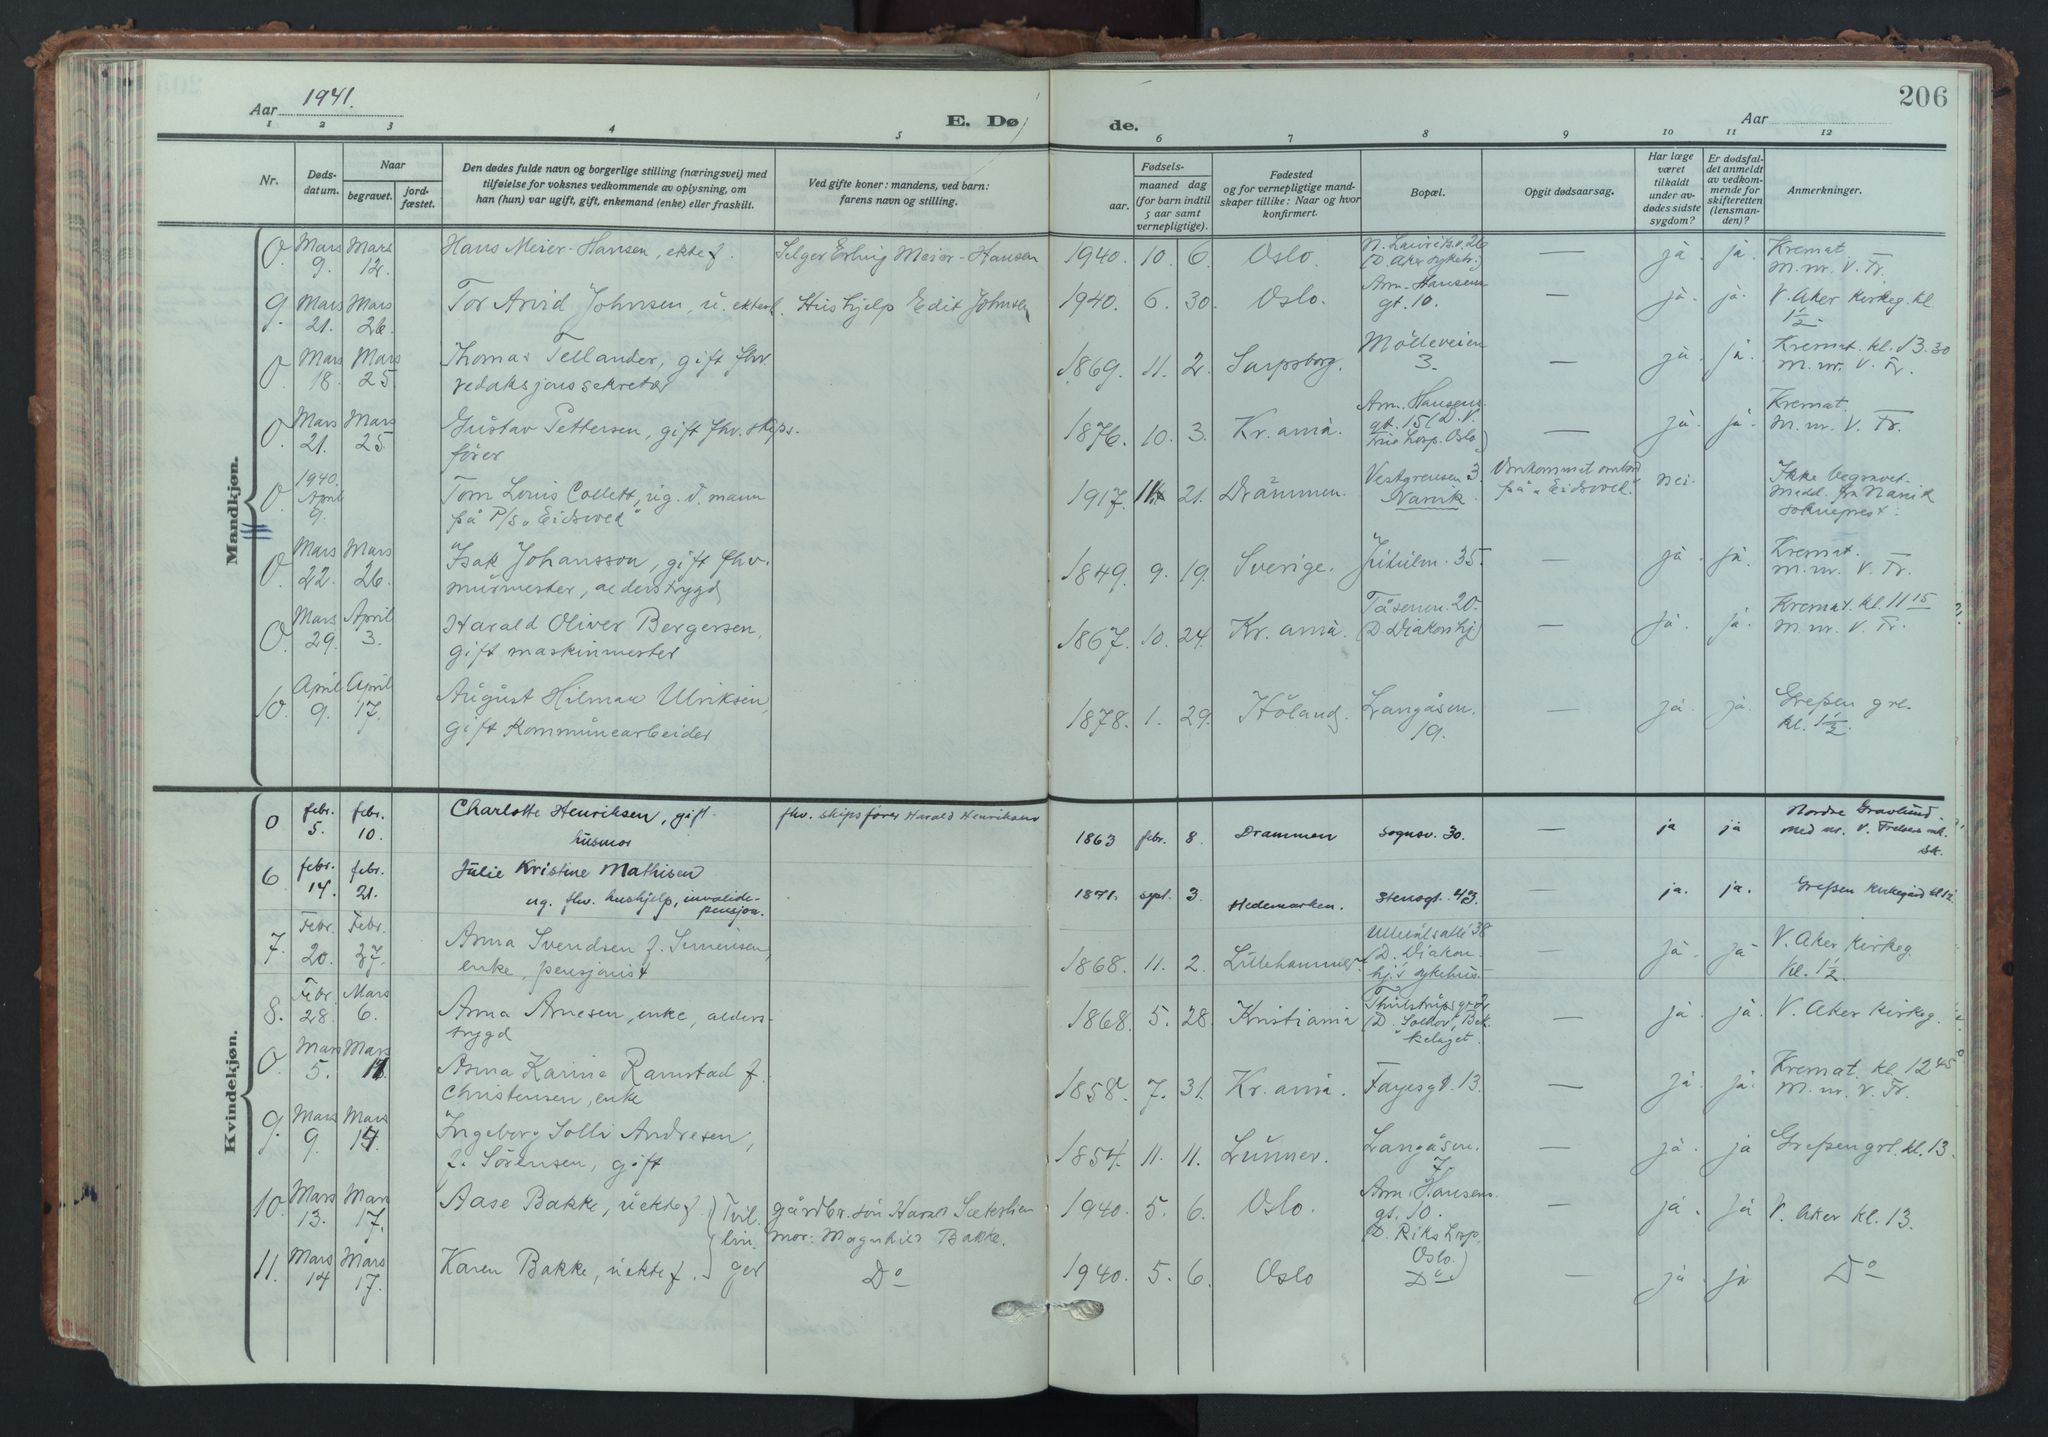 Aar 1941.
E. Døde.
Aar
206
1 2 3 4 5 6 7 8 9 10 11 12
Nr.
Døds-
datum.
Naar
begravet.
jord-
fæstet.
Den dødes fulde navn og borgerlige stilling (næringsvei) med
tilføielse for voksnes vedkommende av oplysning, om
han (hun) var ugift, gift, enkemand (enke) eller fraskilt.
Ved gifte koner: mandens, ved barn:
farens navn og stilling.
Fødsels-
aar.
maaned
dag
(for barn indtil
5 aar samt
vernepligtige).
Fødested
og for vernepligtige mand-
skaper tillike: Naar og hvor
konfirmert.
Bopæl.
Opgit dødsaarsag.
Har læge
været
tilkaldt
under av-
dødes sidste
sygdom?
Er dødsfal-
det anmeldt
av vedkom-
mende for
skifteretten
(lensman-
den)?
Anmerkninger.
Mandkjøn.
0 Mars 9. Mars 12. Hans Meier-Hansen, ektef. Selger Erling Meier-Hansen 1940. 10. 6. Oslo. N. Lauritsv. 26 (D. Aker sykeh.) — ja. ja. Kremat.
M. nr. V. Fr.
9. Mars 21. Mars 26. Tor Arvid Johnsen, u. ektef. Hushjelp Edit Johnsen 1940. 6. 30. Oslo. Arn. Hansens gt. 10. — ja. ja. V. Aker Kirkeg. kl. 1 1/2.
0 Mars 18. Mars 25. Thomas Tellander, gift fhv.
redaksjonssekretær 1869. 11. 2. Sarpsborg. Mölleveien 3. — ja. ja. Kremat. kl. 13.30
M. nr. V. Fr.
0 Mars 21. Mars 25. Gustav Pettersen, gift fhv. skips-
förer 1876. 10. 3. Kr.ania. Arn. Hansens gt. 15 (D. V. Oslo) — ja. ja. Kremat.
M. nr. V. Fr.
0 1940. April 9. Tom Louis Collett, ug. v. mann
på P/s "Eidsvold" 1917. 11. 21. Drammen. Vestgrensen 3. Narvik Omkommet ombord
på "Eidsvold". nei. Ikke begravet.
Medd. fra Narvik
sokneprest.
0 Mars 22. Mars 26. Isak Johansson, gift fhv.
murmester, alderstrygd 1849. 9. 19. Sverige. Jutulv. 35. — ja. ja. Kremat.
M. nr. V. Fr.
0 Mars 29. April 3. Harald Oliver Bergersen,
gift maskinmester 1867. 10. 24. Kr.ania. Tåsenv. 20. (D. Diakonhj.) — ja. ja. Kremat. kl. 11 15
M. nr. V. Fr.
10. April 9. April 17. August Hilmar Ulriksen,
gift Kommunearbeider 1878. 1. 29. Höland. Langåsen. 19. — ja. ja. Grefsen grl.
kl. 1 1/2.
Kvindekjøn.
0 febr. 5. febr. 10. Charlotte Henriksen, gift.
husmor fhv. skipsfører Harald Henriksen 1863 febr. 8. Drammen Sognsv. 30. — ja ja Nordre Gravlund.
med nr. V. Frelsers
6 febr. 14. febr. 21. Julie Kristine Mathisen
ug. fhv. hushjelp, invalide-
pensjon. 1871. sept. 3. Hedemarken. Stensgt. 43. — ja. ja. Grefsen kirkegård kl 12
7. Febr. 20. Febr. 27. Anna Svendsen f. Simensen,
enke, pensjonist 1868. 11. 2. Lillehammer. Ullevålsalle 38 (D. Diakon-
hj's sykehus — ja. ja. V. Aker Kirkeg.
kl. 1 1/2.
8. Febr. 28. Mars 6. Anna Arnesen, enke, alders-
trygd 1868. 5. 28. Kristiania Thulstrupsgt. 2 (D. "Solhov", Bek-
kelaget. — ja. ja. V. Aker Kirkeg.
0 Mars 5. Mars 11. Anna Karine Ramstad f.
Christensen, enke 1858. 7. 31. Kr.ania. Fayesgt. 13. — ja. ja. Kremat. kl. 12 45
M. nr. V. Fr.
9. Mars 9. Mars 14. Ingeborg Solli Andresen,
f. Sörensen, gift 1854. 11. 11. Lunner. Langåsen. 7. — ja. ja Grefsen grl. kl. 13.
10. Mars 13. Mars 17. Aase Bakke, u ektef. Tvil. gårdbr. søn Harald Sæterlien
mor: Magnhild Bakke. 1940. 5. 6. Oslo. Arn. Hansens gt. 10. (D. Rikshosp. Oslo.) — ja. ja V. Aker kl. 13.
11. Mars 14 Mars 17. Karen Bakke, u ektef. lin. ger Do 1940. 5. 6. Oslo Do — ja. ja Do